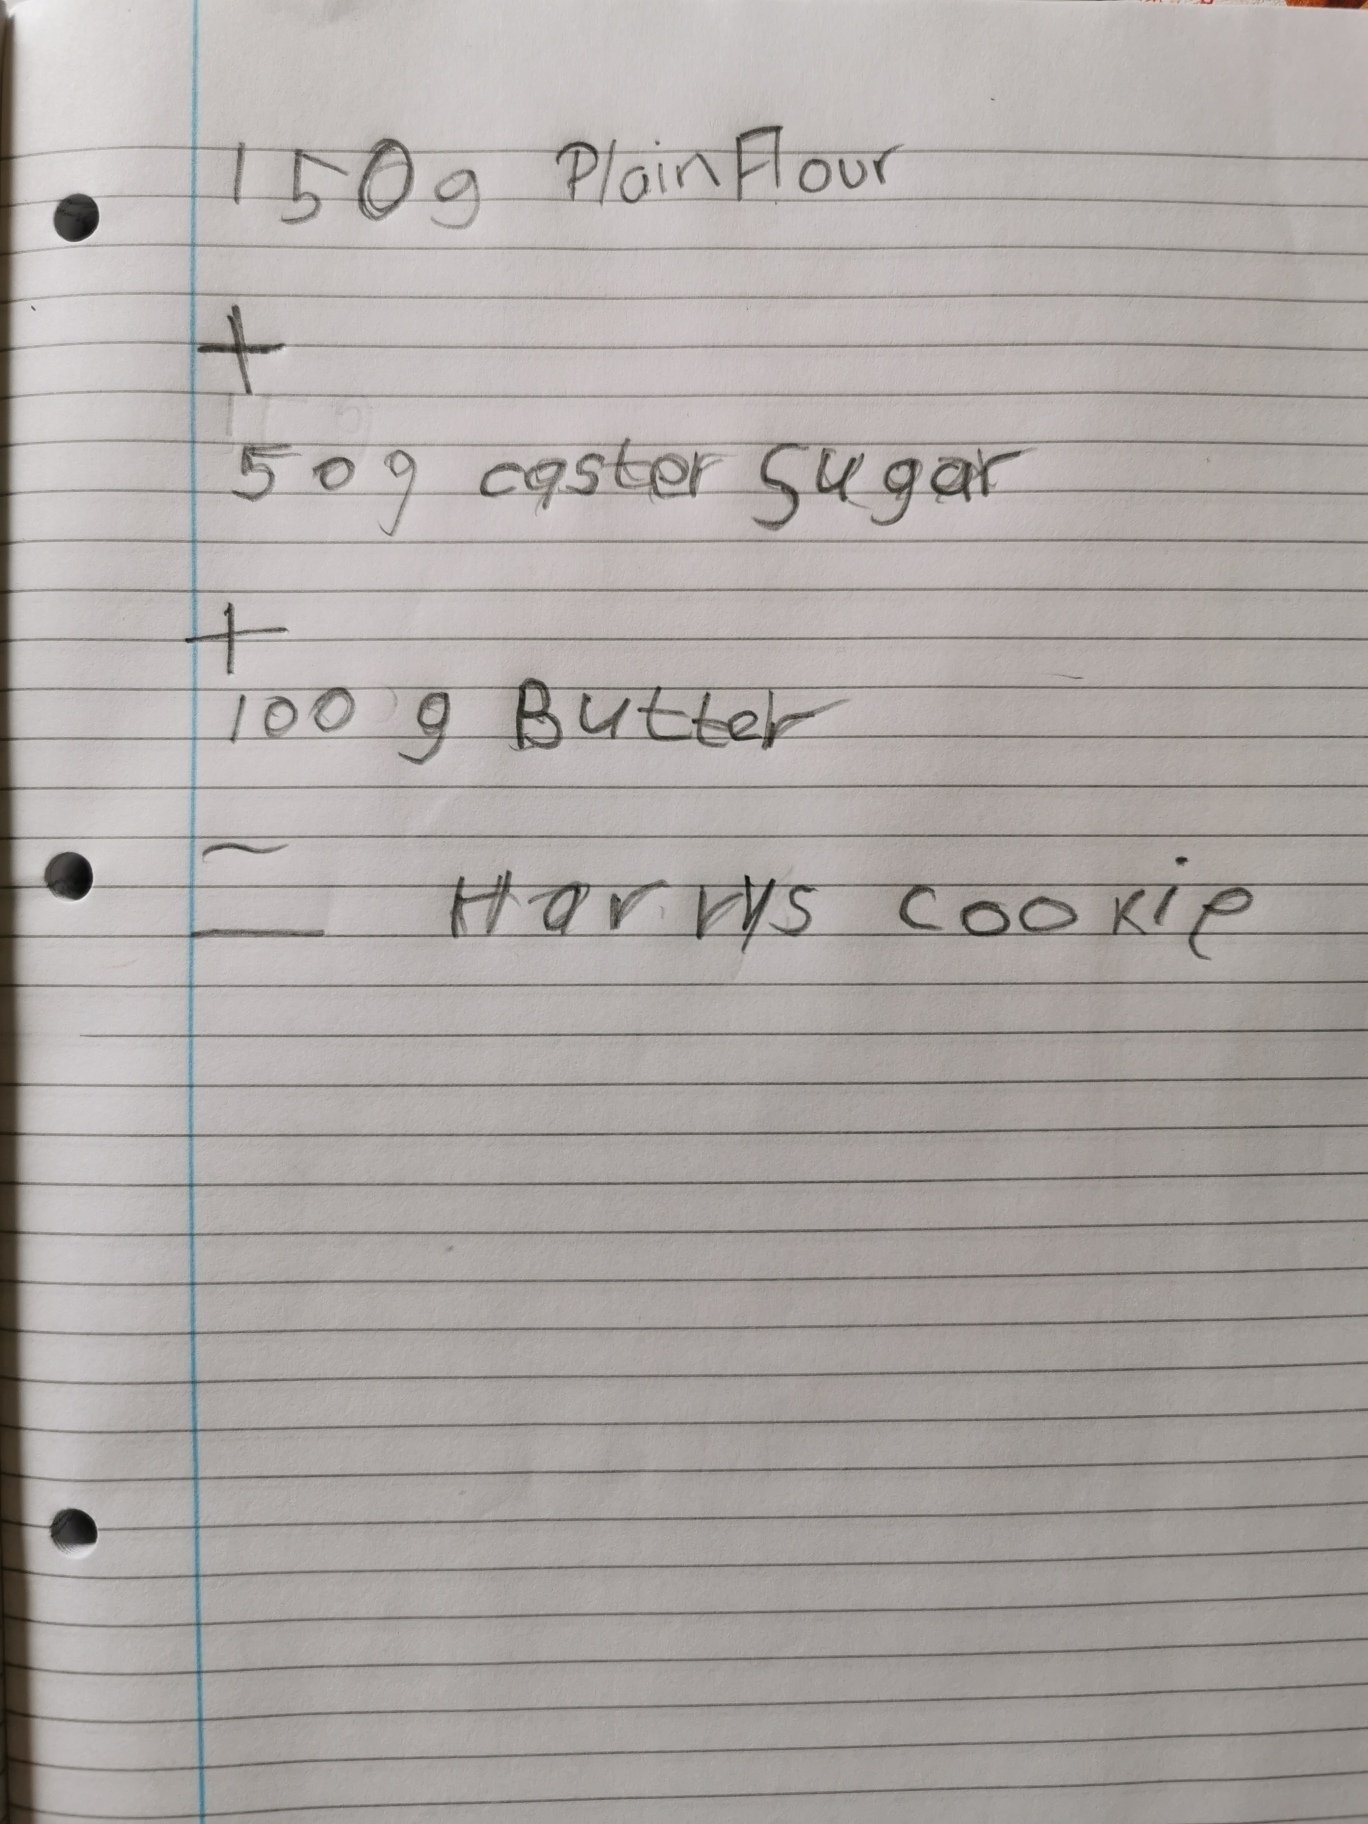 150g Plain Flour
+
50g caster sugar
+
100g Butter
= Harrys cookie